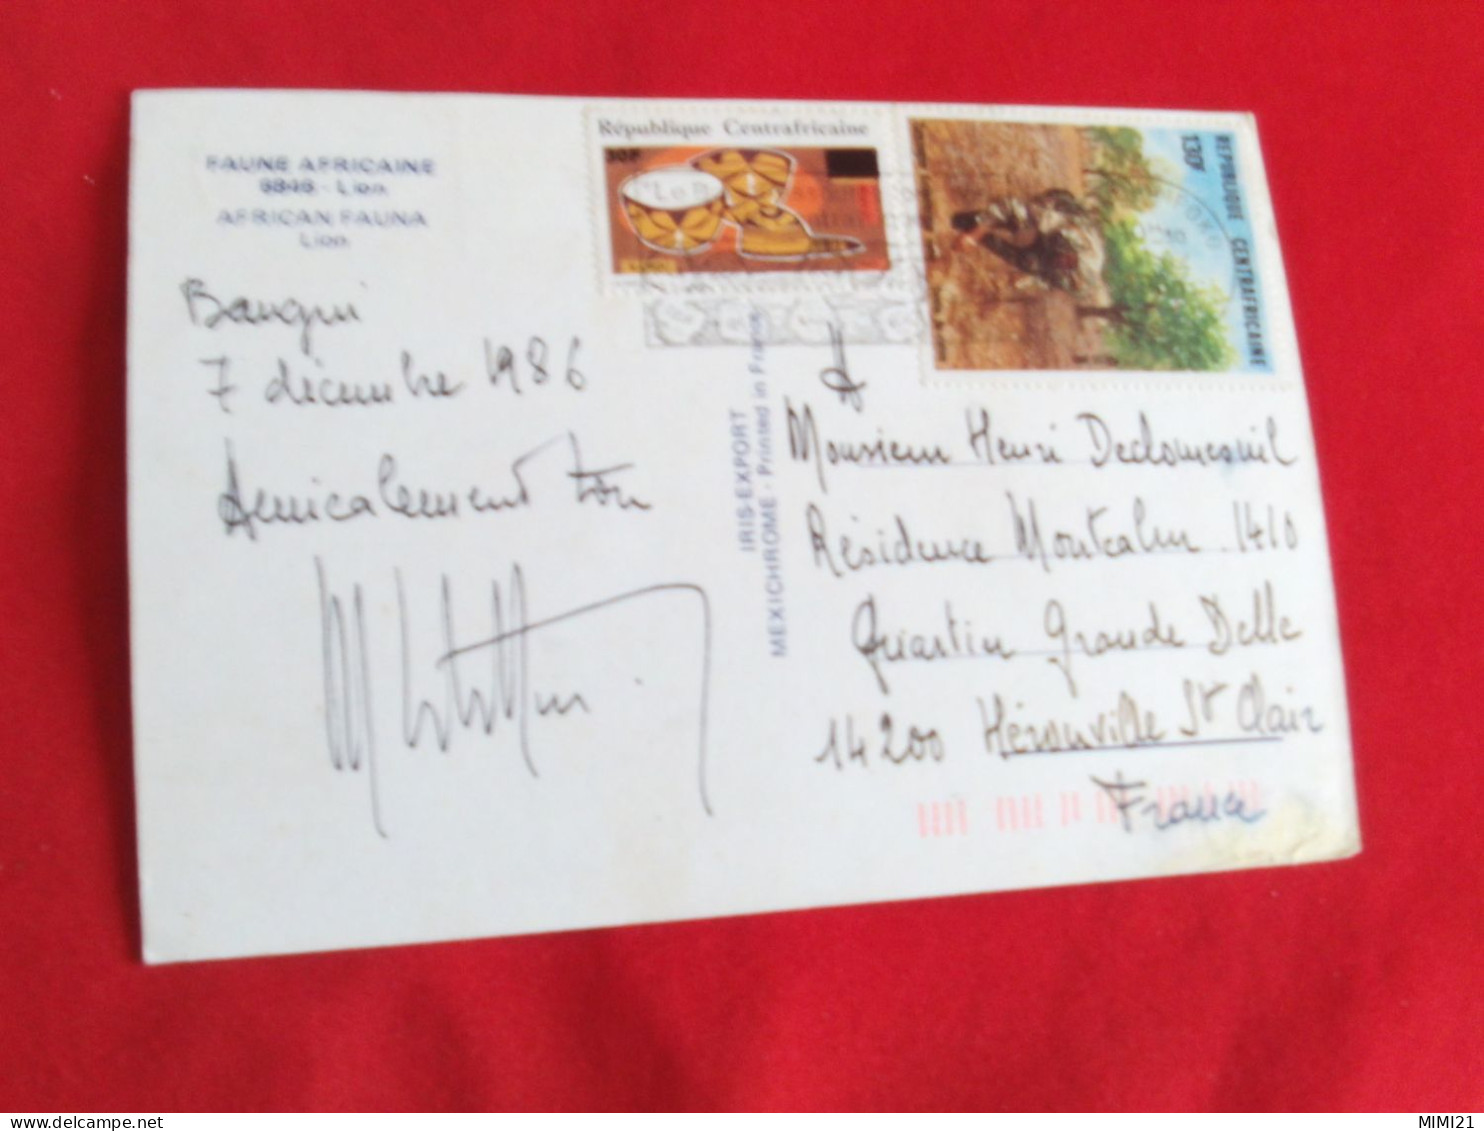 FAUNE AFRICAINE
6846 - Lion
AFRICAN FAUNA
Lion
Bangui
7 décembre 1986
Amicalement ton
République Centrafricaine
30F
REPUBLIQUE CENTRAFRICAINE
130F
IRIS-EXPORT
MEXICHROME - Printed in France
A
Monsieur Henri Declomesnil
Résidence Montcalm . 1410
Quartier Grande Delle
14200 Hérouville St Clair
France
MIMI21